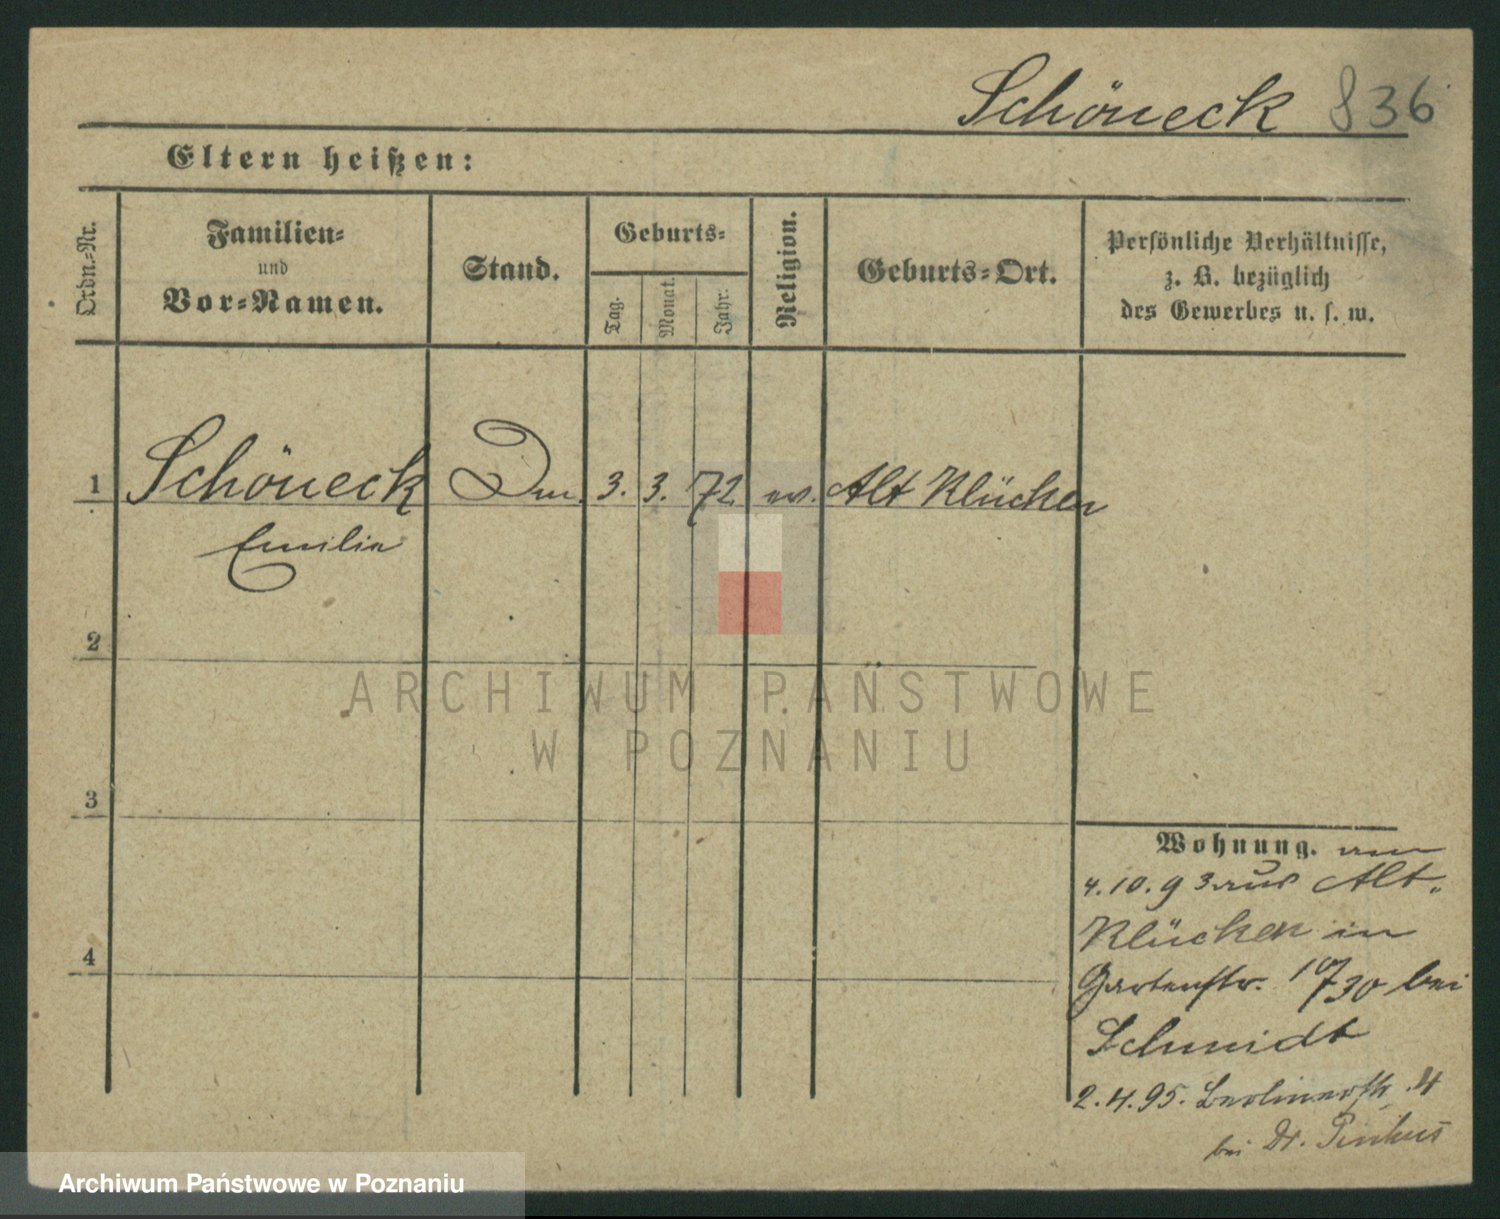 Schöneck 836
Eltern heißen:
Ordn.-Nr.
Familien-
und
Vor-Namen.
Stand.
Geburts-
Tag.
Monat.
Jahr.
Religion.
Geburts-Ort.
Persönliche Verhältnisse,
z. B. bezüglich
des Gewerbes u. s. w.
1 Schöneck 3. 3. 72 ev. Alt Klücken
Emilie
2
3
4
ARCHIWUM PAŃSTWOWE
W POZNANIU
Wohnung. am
4.10.93 aus Alt-
Klücken in
Gartenstr. bei
Schmidt
2.4.95. Berlinerstr. 4
bei Dr. Pinkus
Archiwum Państwowe w Poznaniu